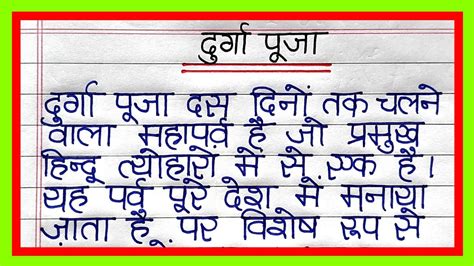 दुर्गा पूजा
दुर्गा पूजा दस दिनों तक चलने
वाला महापर्व है जो प्रमुख
हिन्दू त्योहारो मे से एक है।
यह पर्व पूरे देश मे मनाया
जाता है, पर विशेष रूप से